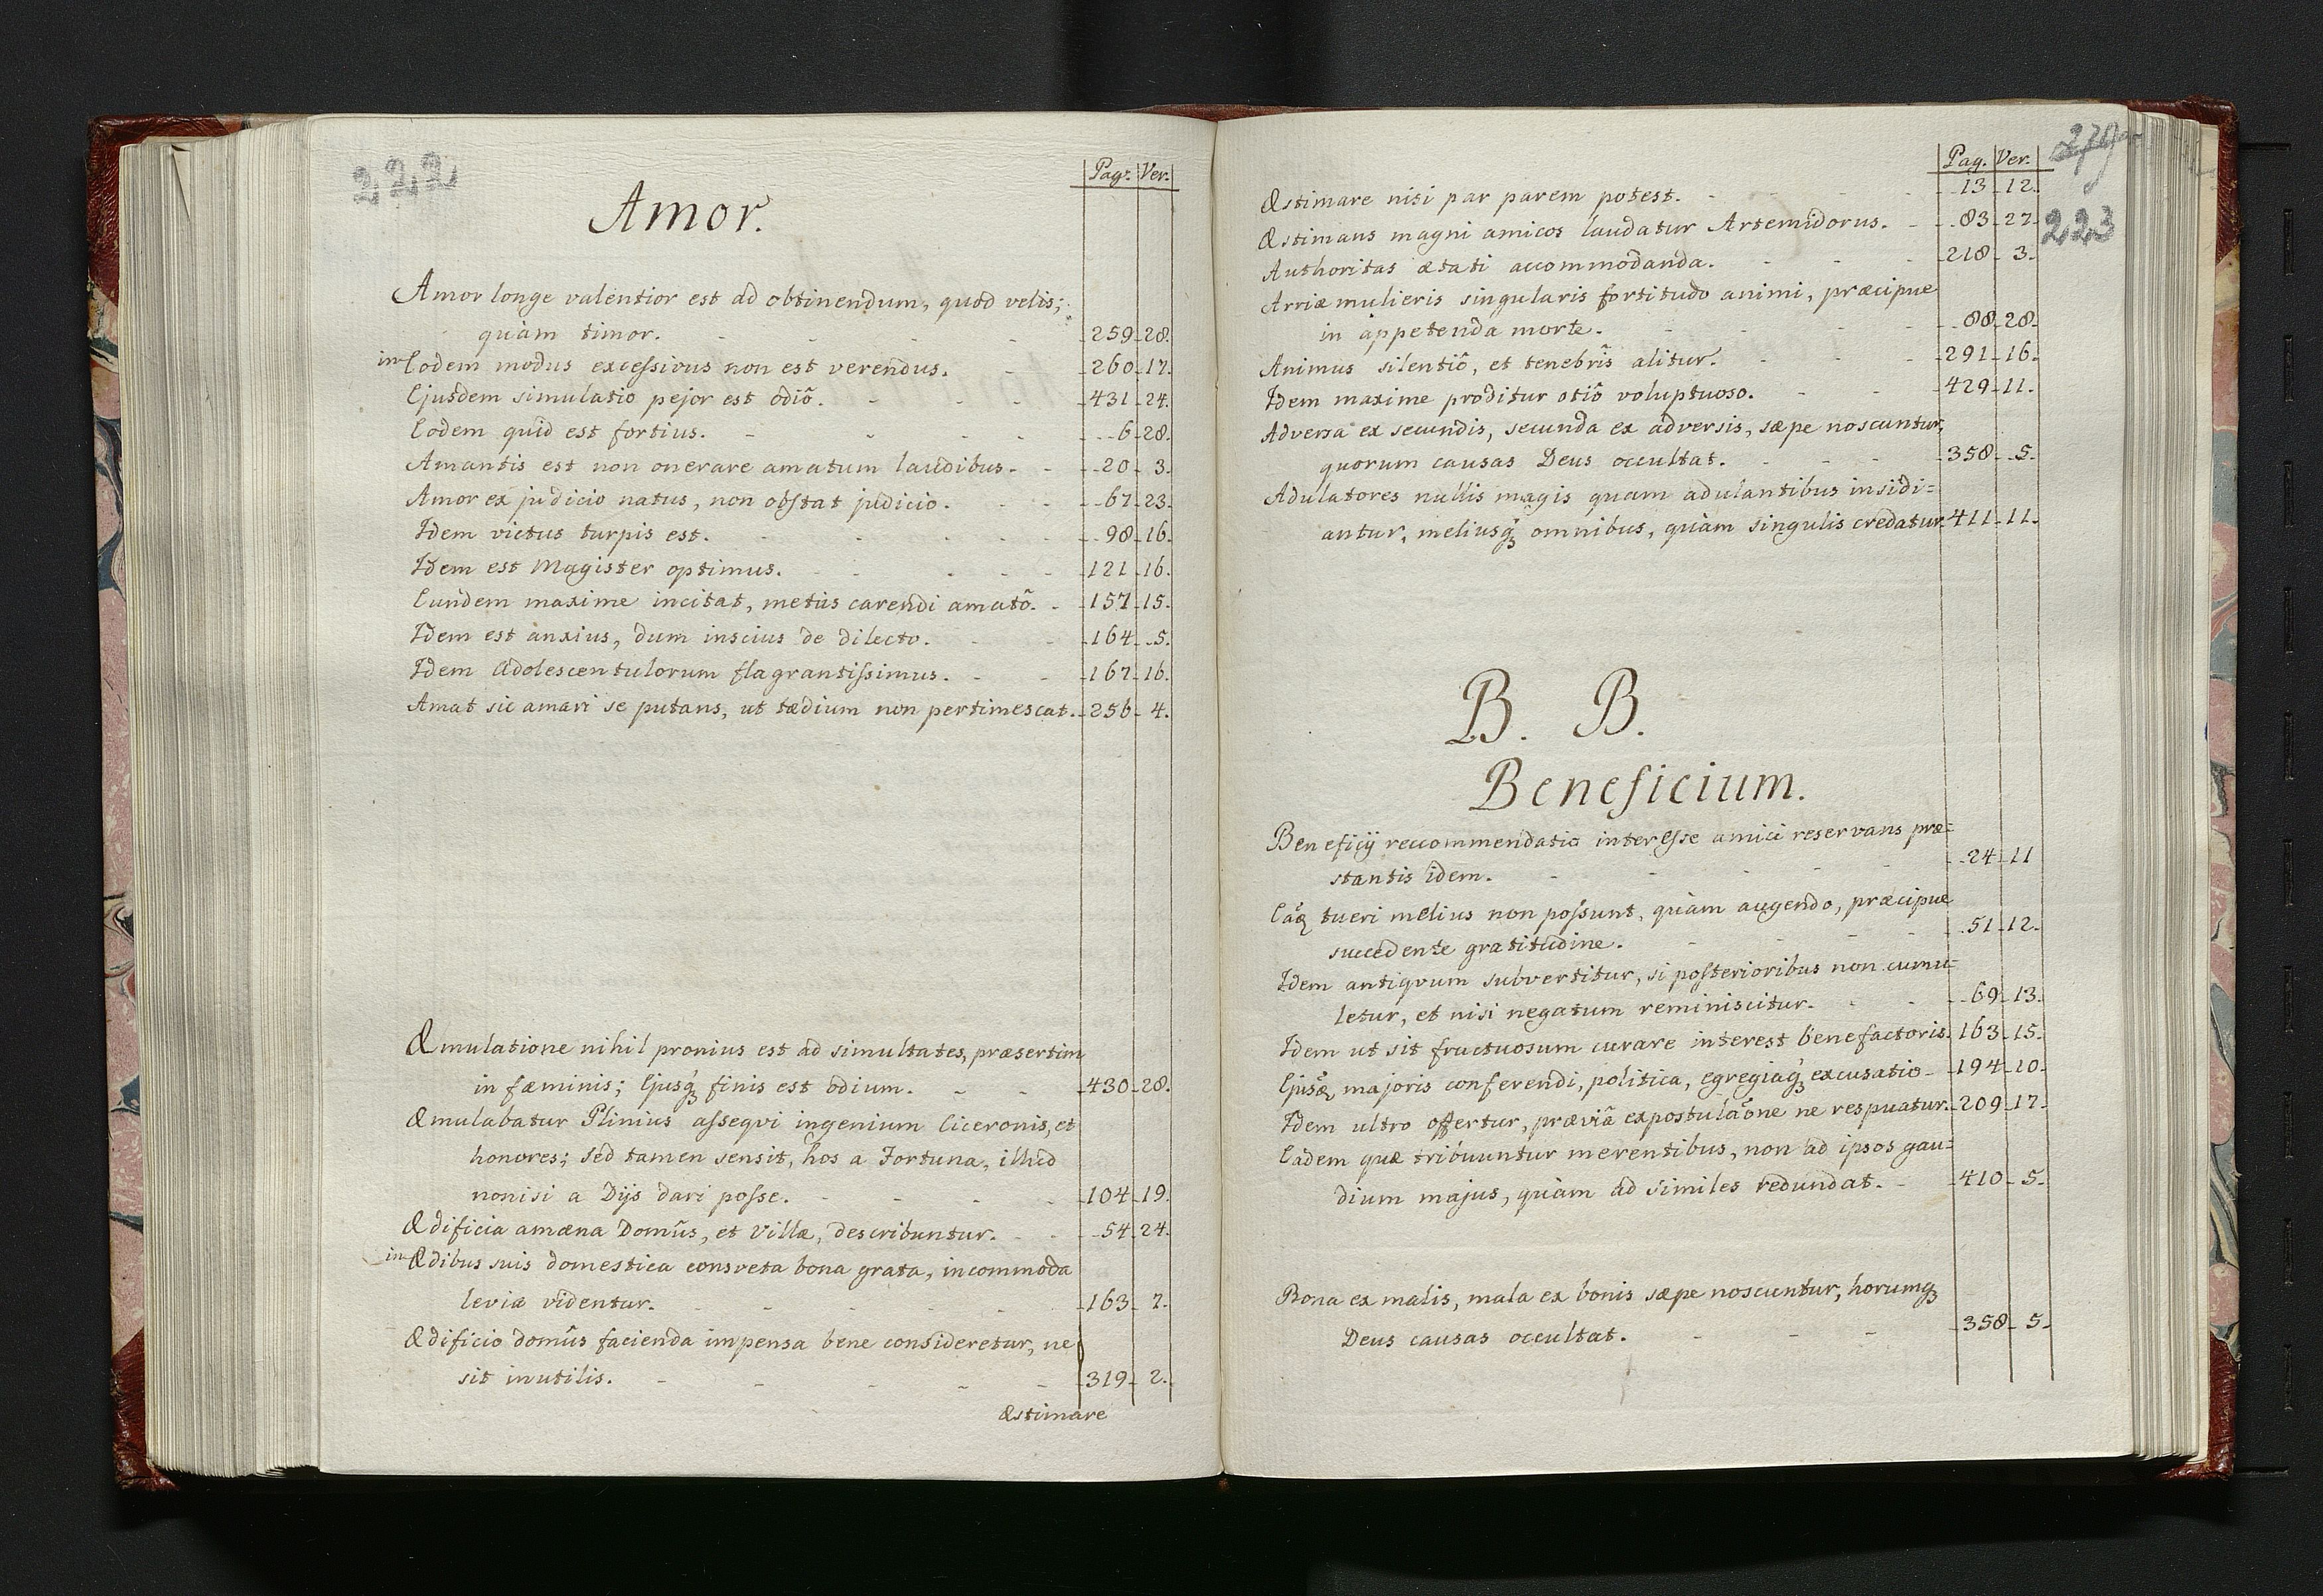 222
Pag. Ver.
Amor.
Amor longe valentior est ad obtinendum, quod velis;
quàm timor. - - - - 259 - 28.
in Eodem modus excessivus non est verendus. - 260 - 17.
Ejusdem simulatio pejor est odiô. - - - 431 - 24.
Eodem quid est fortius. - - - - 6 - 28.
Amantis est non onerare amatum laudibus. - 20 - 3.
Amor ex judicio natus, non obstat judicio. - - 67 - 23.
Idem victus turpis est. - - - - 98 - 16.
Idem est Magister optimus. - - - - 121 - 16.
Eundem maxime incitat, metus carendi amatô. - 157 - 15.
Idem est anxius, dum inscius de dilecto. - - 164 - 5.
Idem Adolescentulorum flagrantissimus. - - 167 - 16.
Amat sic amari se putans, ut tædium non pertimescat. - 256 - 4.
Æmulatione nihil pronius est ad simultates, præsertim
in fæminis; Ejusq́ꝫ finis est odium. - - 430 - 28.
Æmulabatur Plinius assequi ingenium Ciceronis, et
honores; sed tamen sensit, hos a Fortuna, illud
nonisi a Dijs dari posse. - - - - 104 - 19.
Ædificia amæna Domûs, et Villæ, describuntur. - - 54 - 24.
in Ædibus suis domestica consveta bona grata, incommoda
levia videntur. - - - - 163 - 7.
Ædificio domûs facienda impensa bene consideretur, ne
sit inutilis. - - - - - 319 - 2.
Æstimare
223
Pag. Ver.
Æstimare nisi par parem potest. - - - 13 - 12.
Æstimans magni amicos laudatur Artemidorus. - 83 - 27.
Authoritas ætati accommodanda. - - - 218 - 3.
Arriæ mulieris singularis fortitudo animi, præcipue
in appetenda morte. - - - - 88 - 28.
Animus silentiô, et tenebris alitur. - - 291 - 16.
Idem maxime proditur otiô voluptuoso. - - 429 - 11.
Adversa ex secundis, secunda ex adversis, sæpe noscuntur,
quorum causas Deus occultat. - - - 358 - 5.
Adulatores nullis magis quam adulantibus insidi=
antur, meliusq́ꝫ omnibus, quàm singulis credatur. 411 - 11.
B. B.
Beneficium.
Beneficÿ reccommendatio interesse amici reservans præ=
stantis idem. - - - - 24 - 11
tueri melius non possunt, quàm augendo, præcipue
succedente gratitudine. - - - - 51 - 12.
Idem antiqvum subvertitur, si posterioribus non cumu=
letur, et nisi negatum reminiscitur. - - 69 - 13.
Idem ut sit fructuosum curare interest benefactoris. 163 - 15.
majoris conferendi, politica, egregiaq́ꝫ excusatio - 194 - 10.
Idem ultro offertur, præviâ expostulaõne ne respuatur. - 209 - 17.
Eadem quæ tribuuntur merentibus, non ad ipsos gau=
dium majus, quàm ad similes redundat. - 410 - 5.
Bona ex malis, mala ex bonis sæpe noscuntur, horumqꝫ
Deus causas occultat. - - - 358 - 5.